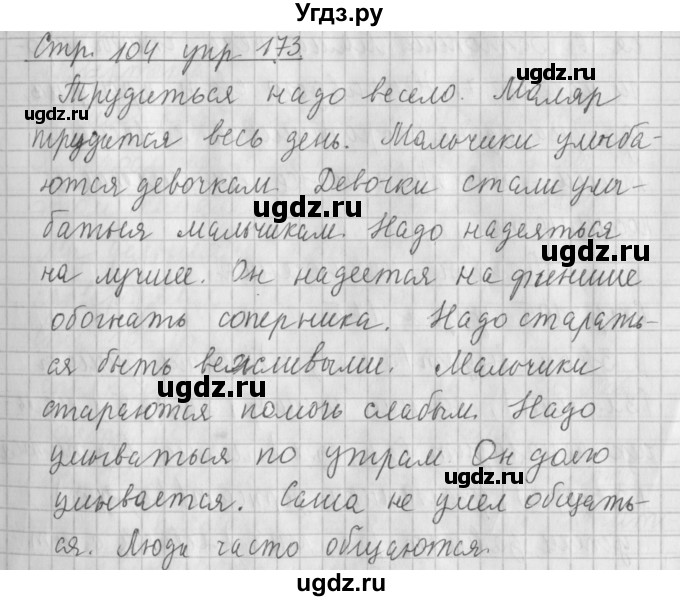 Угдз.ру
Стр. 104 упр 173
Трудиться надо весело. Маляр
трудится весь день. Мальчики улыба-
ются девочкам. Девочки стали улы-
баться мальчикам. Надо надеяться
на лучшее. Он надеется на финише
обогнать соперника. Надо старать-
ся быть вежливыми. Мальчики
стараются помочь слабым. Надо
умываться по утрам. Он долго
умывается. Саша не умел общать-
ся. Люди часто общаются.
ugdz.ru
ugdz.ru
ugdz.ru
ugdz.ru
ugdz.ru
ugdz.ru
ugdz.ru
ugdz.ru
ugdz.ru